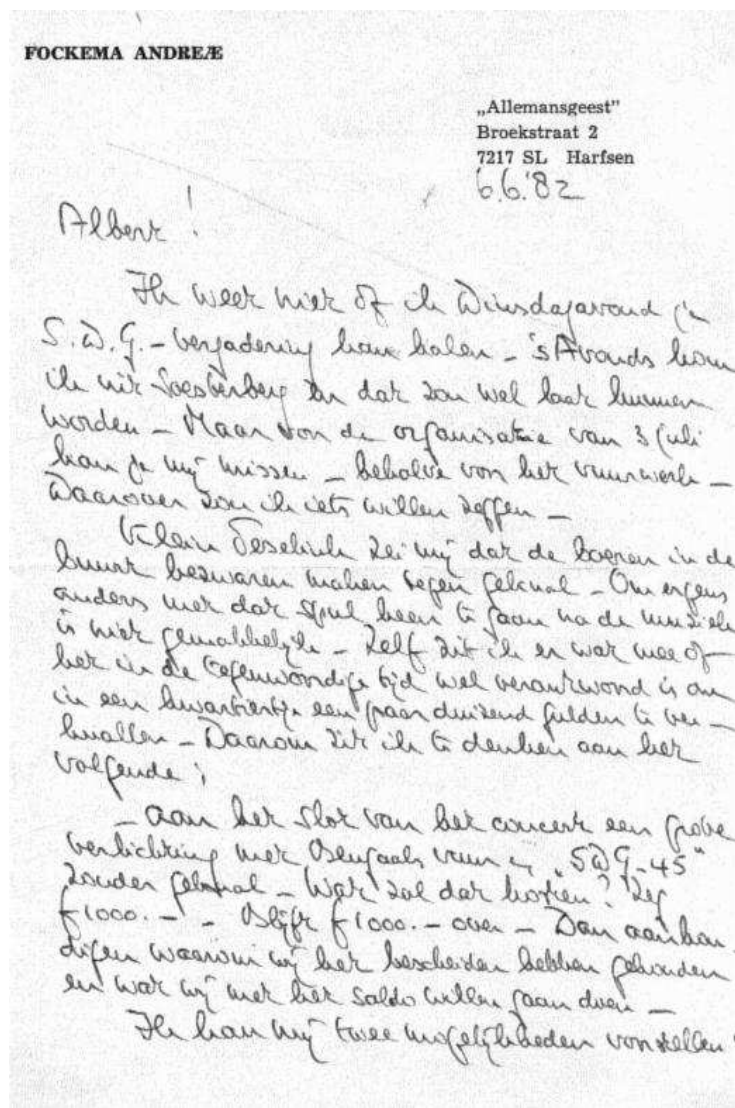 FOCKEMA ANDREÆ
„Allemansgeest”
Broekstraat 2
7217 SL Harfsen
6.6.'82
Albert!
Ik weet niet of ik Dinsdagavond de
S.W.G.-vergadering kan halen - 's Avonds kom
ik uit Soesterberg en dat zou wel laat kunnen
worden - Maar voor de organisatie van 3 juli
kan je mij missen - behalve voor het vuurwerk -
Daarover zou ik iets willen zeggen -
Klein zei mij dat de boeren in de
buurt bezwaren maken tegen geknal - Om ergens
anders met dat spul heen te gaan na de muziek
is niet gemakkelijk - Zelf zit ik er wat mee of
het in de tegenwoordige tijd wel verantwoord is om
in een kwartiertje een paar duizend gulden te ver-
knallen - Daarom zit ik te denken aan het
volgende:
- aan het slot van het concert een grote
verlichting met Bengaals vuur „SWG-45”
zonder geknal - Wat zal dat kosten? Zeg
f1000.- - Blijft f1000.- over - Dan aankon-
digen waarom wij het bescheiden hebben gehouden
en wat wij met het saldo willen gaan doen -
Ik kan mij twee mogelijkheden voorstellen